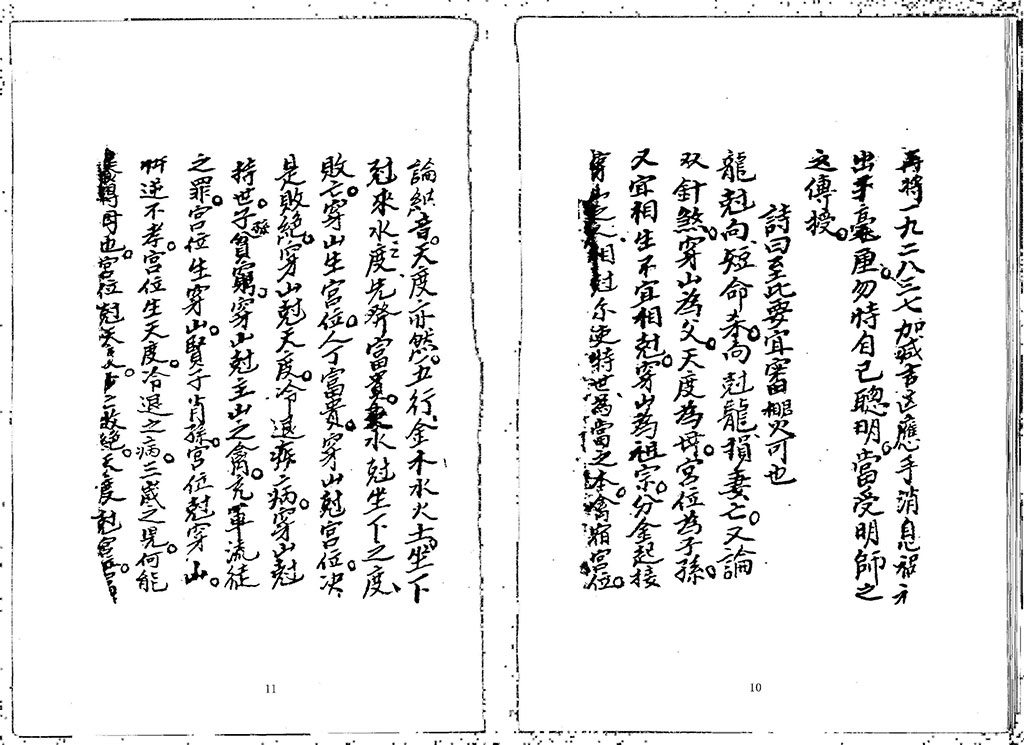 再將一九二八三七加減吉凶應手消息
出乎毫厘。勿恃自己聰明。當受明師之
之傳授。
詩曰至此要宜審 可也
龍尅向。短命夭。向尅龍。損妻亡。又論
双針煞。穿山為父。天度為母。宮位為子孫。
又宜相生不宜相尅。穿山為祖宗。分金起接
相尅 持世為當之本禽 宮位。
論納音。天度亦然。五行金木水火土。坐下
尅來水度先發富貴。來水尅坐下之度、
敗亡。穿山生宮位。人丁富貴。穿山尅宮位。决
是敗絕。穿山尅天度。冷退痳病。穿山尅
持世。子孫貧窮。穿山尅主山之禽。充軍流徒
之罪。宮位生穿山。賢子肖孫。宮位尅穿山。
忤逆不孝。宮位生天度。冷退之病。三歲之児何能
母也。宮位尅天 敗絕。天度尅宮位。
11
10